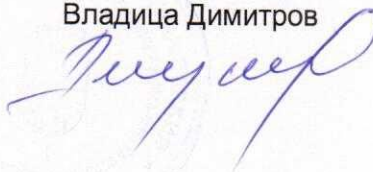 Владица Димитров